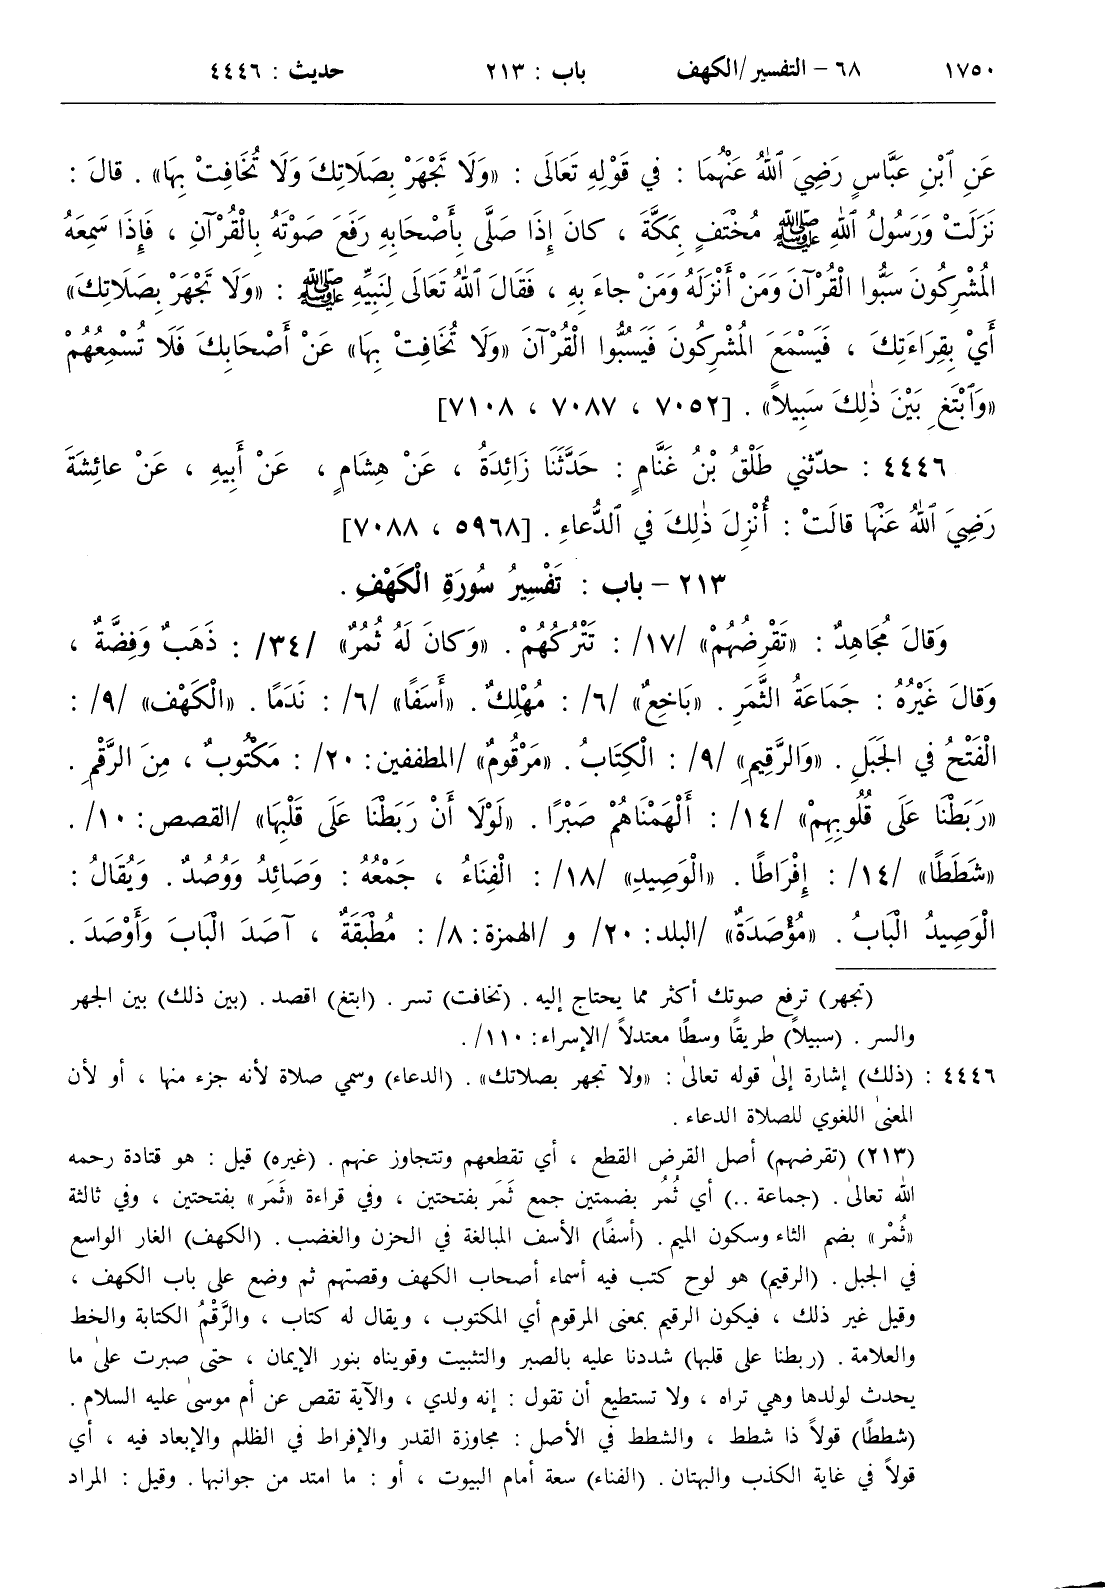 ١٧٥٠ ٦٨ - التفسير/الكهف باب : ٢١٣ حديث : ٤٤٤٦
عَنِ ٱبْنِ عَبَّاسٍ رَضِيَ ٱللهُ عَنْهُمَا : في قَوْلِهِ تَعَالَى : «وَلَا تَجْهَرْ بِصَلَاتِكَ وَلَا تُخَافِتْ بِهَا» . قالَ :
نَزَلَتْ وَرَسُولُ ٱللهِ ﷺ مُخْتَفٍ بِمَكَّةَ ، كانَ إِذَا صَلَّى بِأَصْحَابِهِ رَفَعَ صَوْتَهُ بِالْقُرْآنِ ، فَإِذَا سَمِعَهُ
المُشْرِكُونَ سَبُّوا الْقُرْآنَ وَمَنْ أَنْزَلَهُ وَمَنْ جاءَ بِهِ ، فَقَالَ ٱللهُ تَعَالَى لِنَبِيِّهِ ﷺ : «وَلَا تَجْهَرْ بِصَلَاتِكَ»
أَيْ بِقِرَاءَتِكَ ، فَيَسْمَعَ المُشْرِكُونَ فَيَسُبُّوا الْقُرْآنَ «وَلَا تُخَافِتْ بِهَا» عَنْ أَصْحَابِكَ فَلَا تُسْمِعُهُمْ
«وَٱبْتَغِ بَيْنَ ذٰلِكَ سَبِيلاً» . [٧٠٥٢ ، ٧٠٨٧ ، ٧١٠٨]
٤٤٤٦ : حدّثني طَلْقُ بْنُ غَنَّامٍ : حَدَّثَنَا زَائِدَةُ ، عَنْ هِشَامٍ ، عَنْ أَبِيهِ ، عَنْ عائِشَةَ
رَضِيَ ٱللهُ عَنْهَا قالَتْ : أُنْزِلَ ذٰلِكَ في ٱلدُّعاءِ . [٥٩٦٨ ، ٧٠٨٨]
٢١٣ - باب : تَفْسِيرُ سُورَةِ الْكَهْفِ .
وَقالَ مُجَاهِدٌ : «تَقْرِضُهُمْ» /١٧/ : تَتْرُكُهُمْ. «وَكانَ لَهُ ثُمُرٌ» /٣٤/ : ذَهَبٌ وَفِضَّةٌ ،
وَقالَ غَيْرُهُ : جَمَاعَةُ الثَّمَرِ . «بَاخِعٌ» /٦/ : مُهْلِكٌ. «أَسَفًا» /٦/ : نَدَمًا . «الْكَهْف» /٩/ :
الْفَتْحُ في الجَبَلِ. «وَالرَّقِيمِ» /٩/ : الْكِتَابُ. «مَرْقُومٌ» /المطففين: ٢٠/ : مَكْتُوبٌ ، مِنَ الرَّقْمِ .
«رَبَطْنَا عَلَى قُلُوبِهِمْ» /١٤/ : أَلْهَمْنَاهُمْ صَبْرًا. «لَوْلَا أَنْ رَبَطْنَا عَلَى قَلْبِهَا» /القصص: ١٠/ .
«شَطَطًا» /١٤/ : إِفْرَاطًا . «الْوَصِيدِ» /١٨/ : الْفِنَاءُ ، جَمْعُهُ : وَصَائِدُ وَوُصُدٌ . وَيُقَالُ :
الْوَصِيدُ الْبَابُ . «مُؤْصَدَةٌ» /البلد: ٢٠/ و /الهمزة: ٨/ : مُطْبَقَةٌ ، آصَدَ الْبَابَ وَأَوْصَدَ .
(تجهر) ترفع صوتك أكثر مما يحتاج إليه . (تخافت) تسر . (ابتغ) اقصد . (بين ذلك) بين الجهر
والسر . (سبيلاً) طريقًا وسطًا معتدلاً /الإسراء: ١١٠/ .
٤٤٤٦ : (ذلك) إشارة إلىٰ قوله تعالىٰ : «ولا تجهر بصلاتك» . (الدعاء) وسمي صلاة لأنه جزء منها ، أو لأن
المعنىٰ اللغوي للصلاة الدعاء .
(٢١٣) (تقرضهم) أصل القرض القطع ، أي تقطعهم وتتجاوز عنهم . (غيره) قيل : هو قتادة رحمه
الله تعالىٰ . (جماعة ..) أي ثُمُر بضمتين جمع ثَمَر بفتحتين ، وفي قراءة «ثَمَر» بفتحتين ، وفي ثالثة
«ثُمْر» بضم الثاء وسكون الميم . (أسفًا) الأسف المبالغة في الحزن والغضب . (الكهف) الغار الواسع
في الجبل . (الرقيم) هو لوح كتب فيه أسماء أصحاب الكهف وقصتهم ثم وضع على باب الكهف ،
وقيل غير ذلك ، فيكون الرقيم بمعنى المرقوم أي المكتوب ، ويقال له كتاب ، والرَّقْمُ الكتابة والخط
والعلامة . (ربطنا على قلبها) شددنا عليه بالصبر والتثبيت وقويناه بنور الإيمان ، حتىٰ صبرت علىٰ ما
يحدث لولدها وهي تراه ، ولا تستطيع أن تقول : إنه ولدي ، والآية تقص عن أم موسىٰ عليه السلام .
(شططًا) قولاً ذا شطط ، والشطط في الأصل : مجاوزة القدر والإفراط في الظلم والإبعاد فيه ، أي
قولاً في غاية الكذب والبهتان . (الفناء) سعة أمام البيوت ، أو : ما امتد من جوانبها . وقيل : المراد